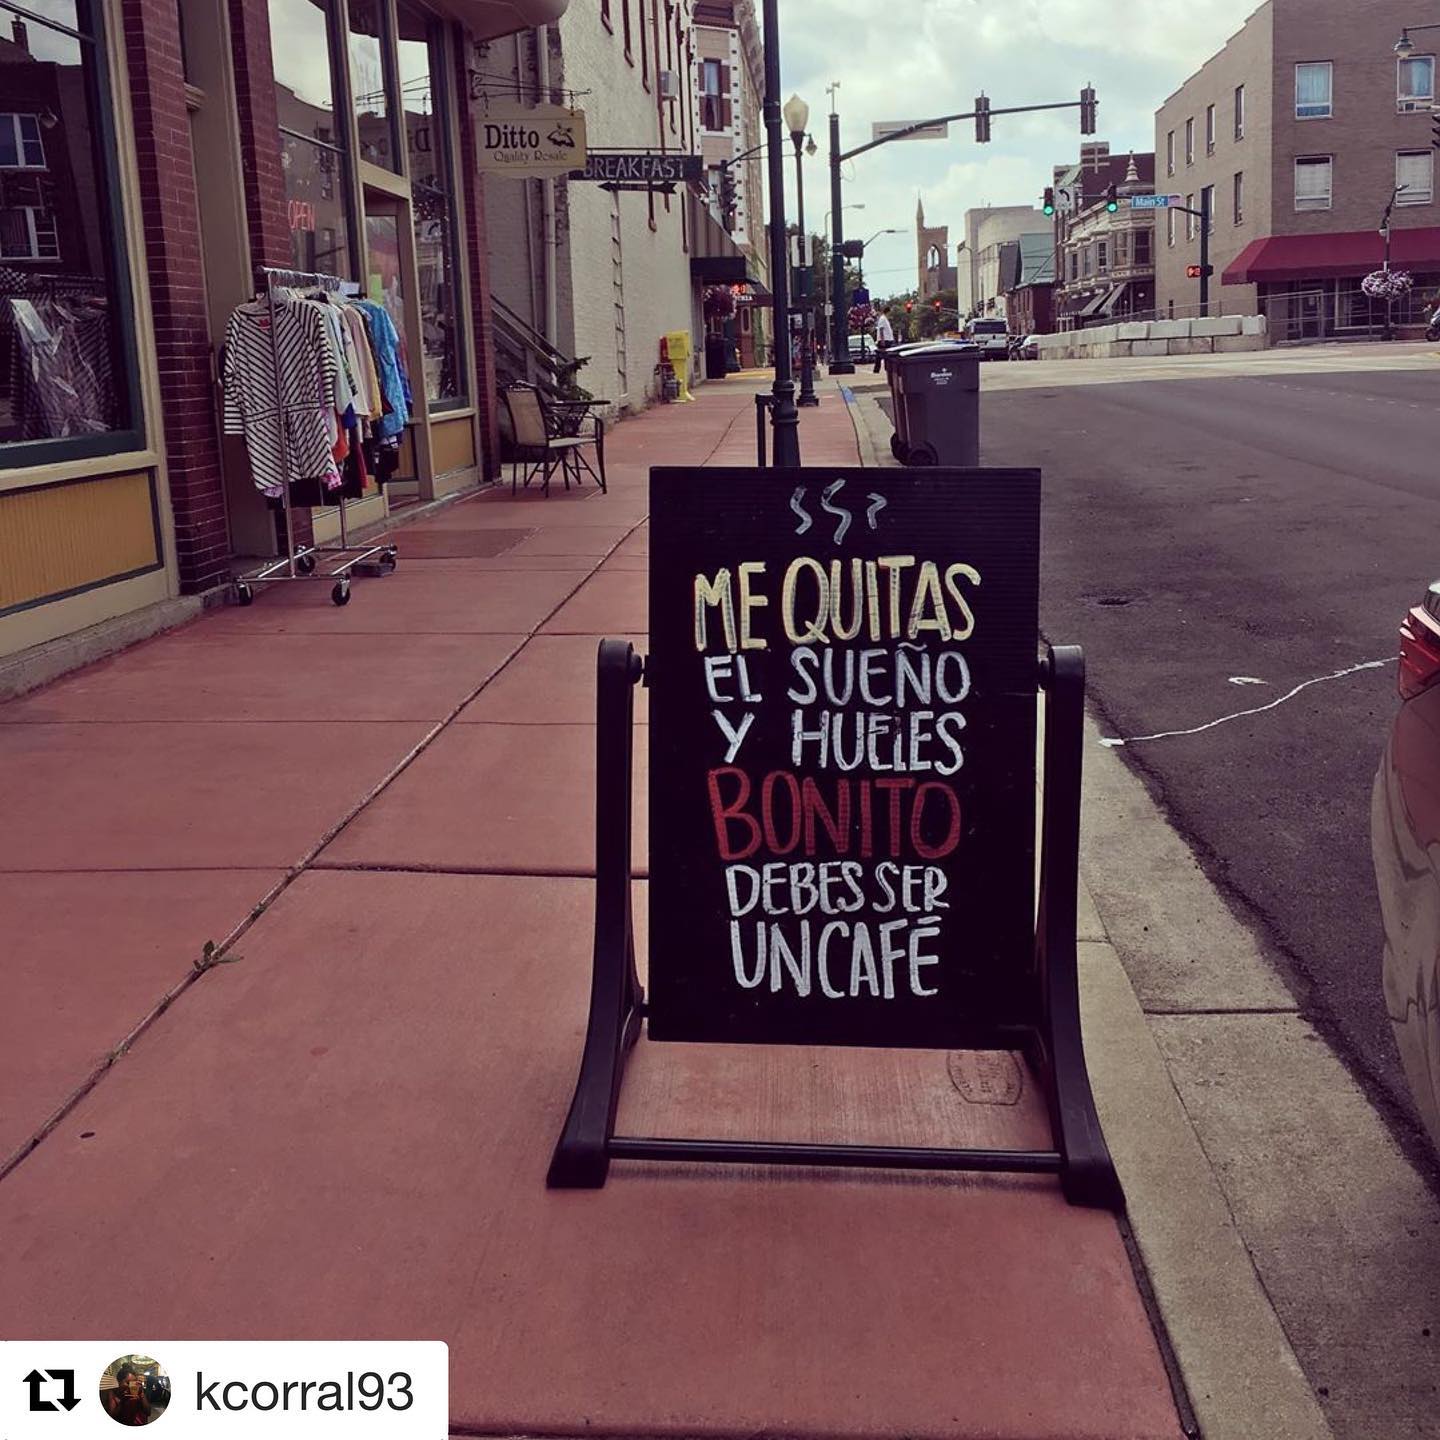 Ditto
Quality Resale
BREAKFAST
OPEN
Main St
ME QUITAS
EL SUEÑO
Y HUELES
BONITO
DEBES SER
UN CAFÉ
kcorral93